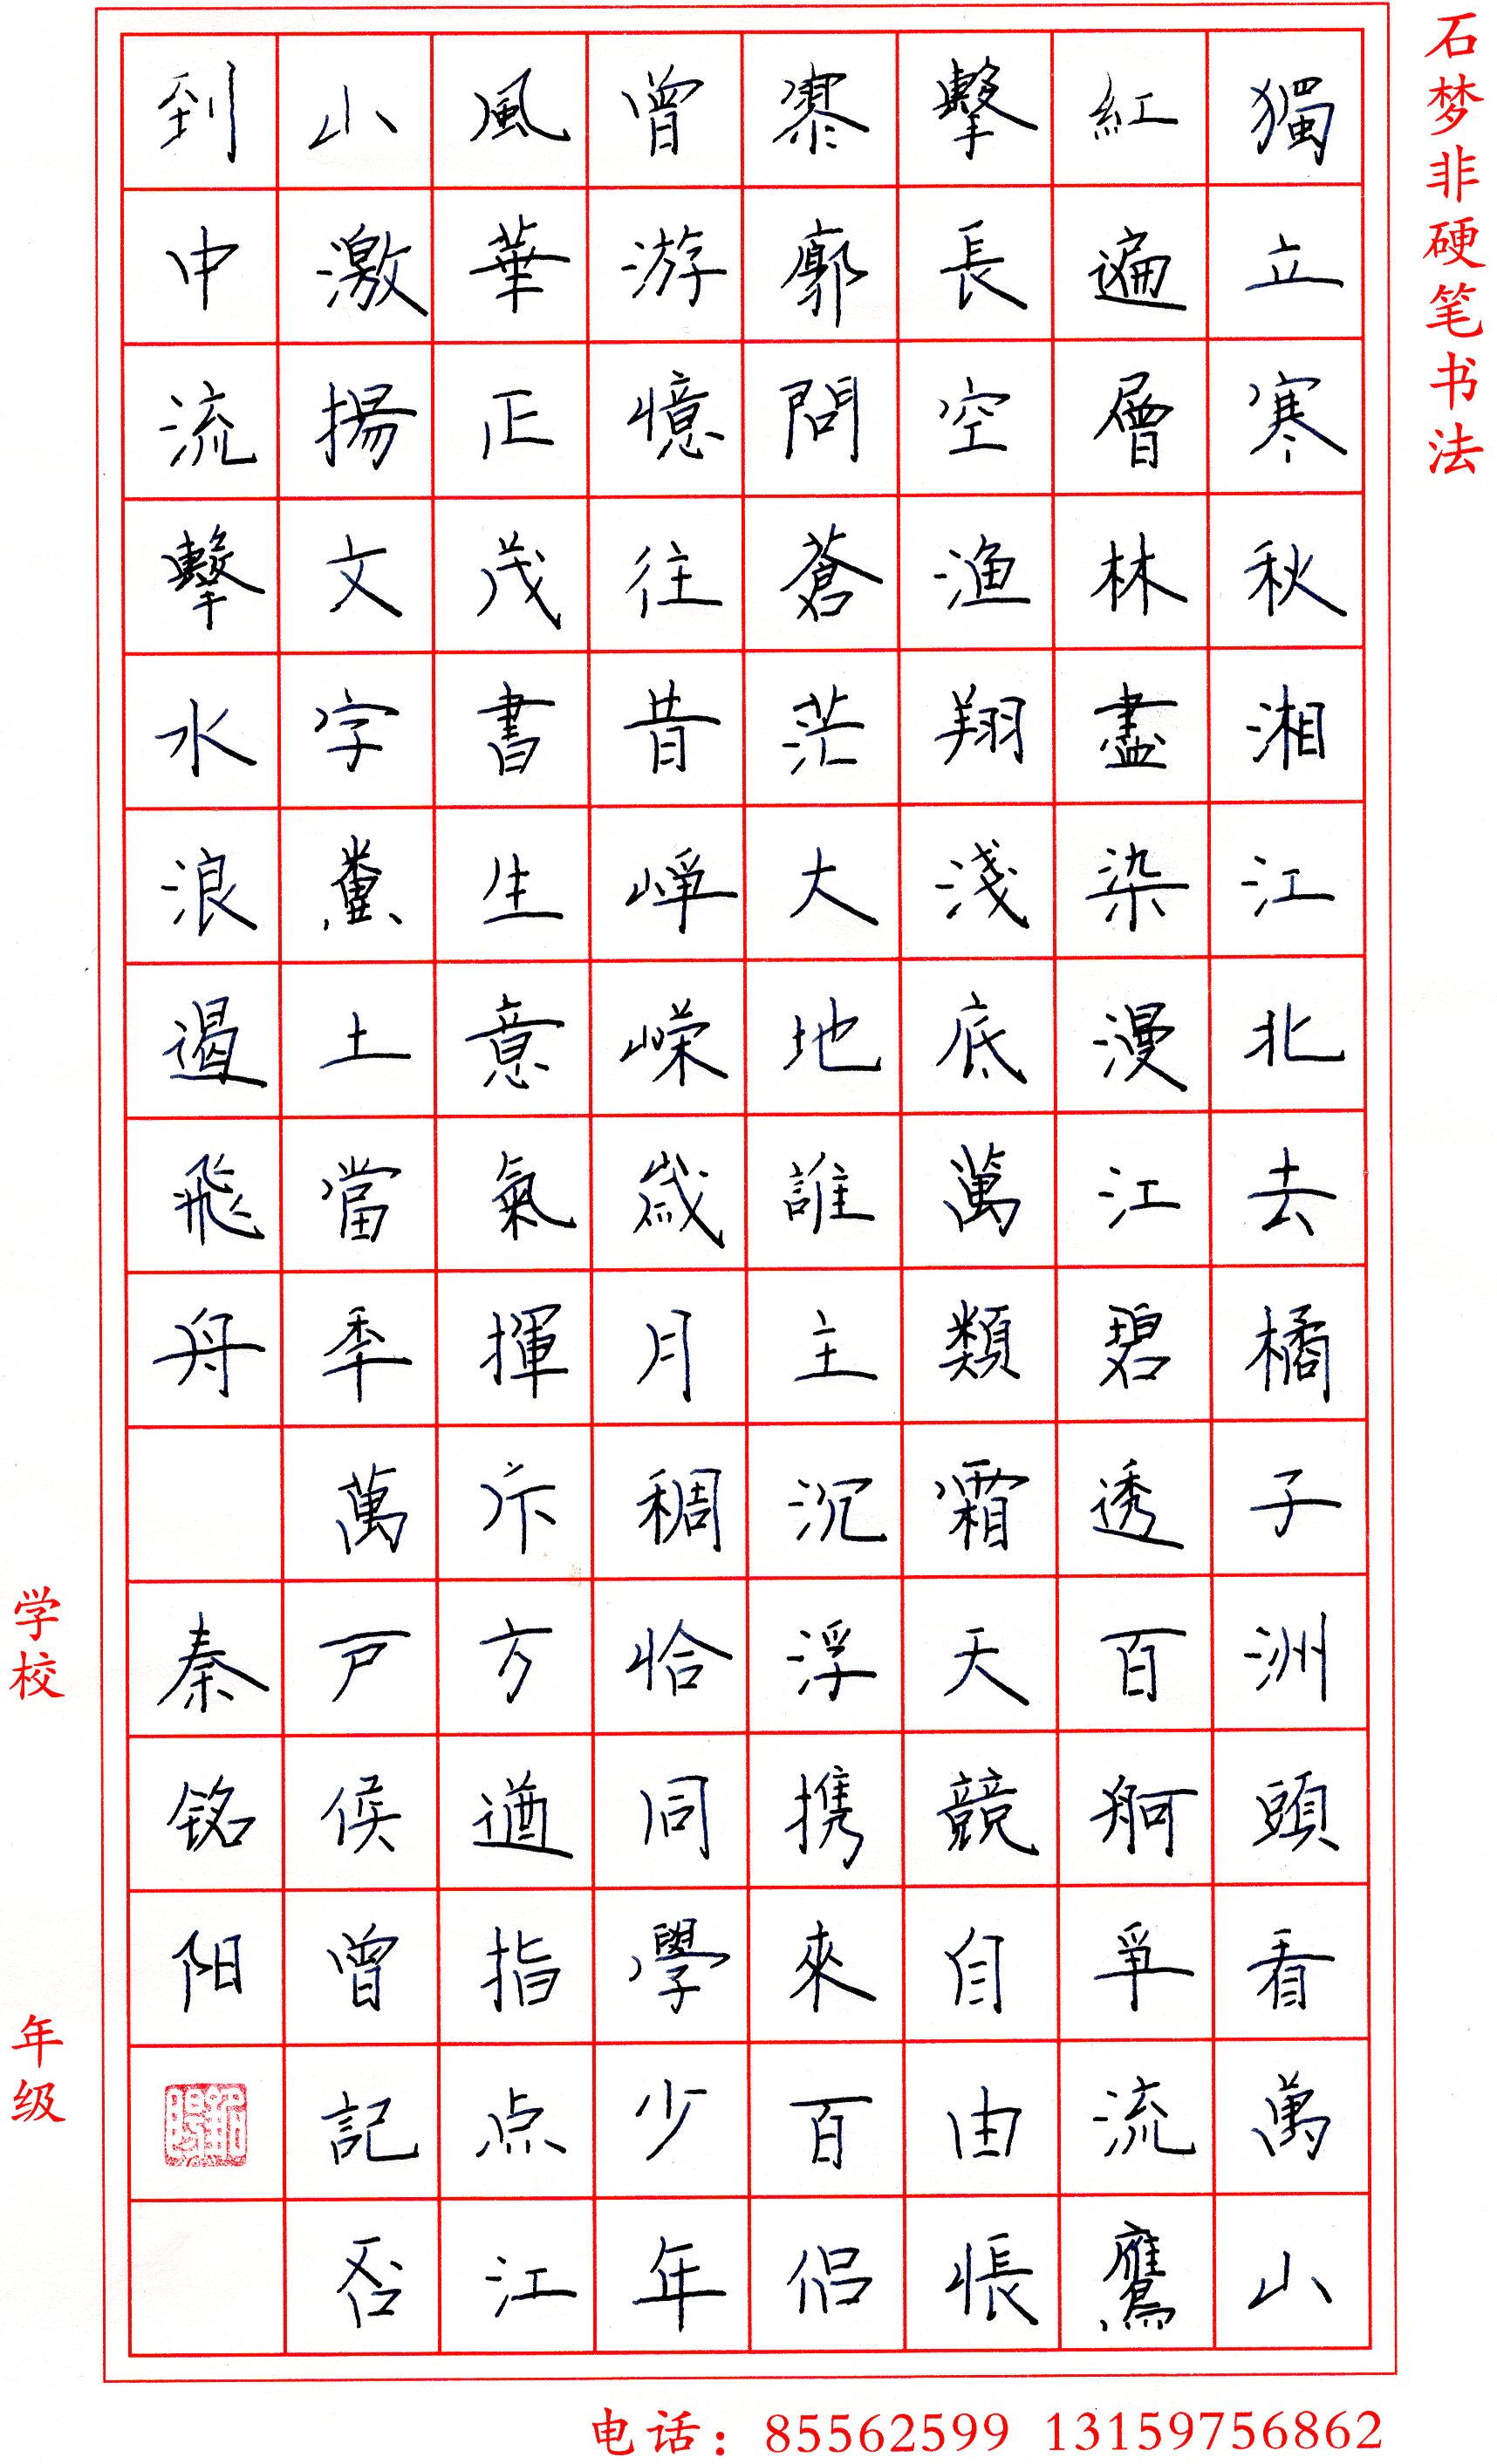 石梦非硬笔书法
獨立寒秋湘江北去橘子洲頭看萬山
紅遍層林盡染漫江碧透百舸爭流鷹
擊長空渔翔淺底萬類霜天競自由悵
寥廓問蒼茫大地誰主沉浮携來百侣
曾游憶往昔崢嵘歲月稠恰同學少年
風華正茂書生意氣揮斥方遒指点江
山激揚文字糞土當年萬户侯曾記否
到中流擊水浪遏飛舟 秦铭阳
学校 年级
电话：85562599 13159756862